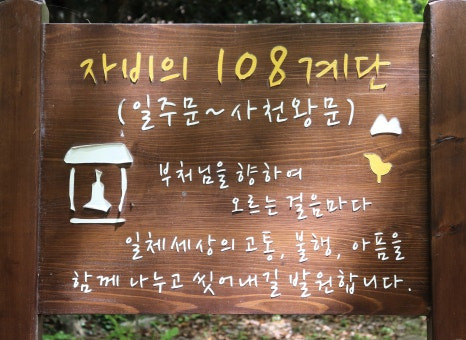 자비의 108계단
(일주문~사천왕문)
부처님을 향하여
오르는 걸음마다
일체세상의 고통, 불행, 아픔을
함께 나누고 씻어내길 발원합니다.